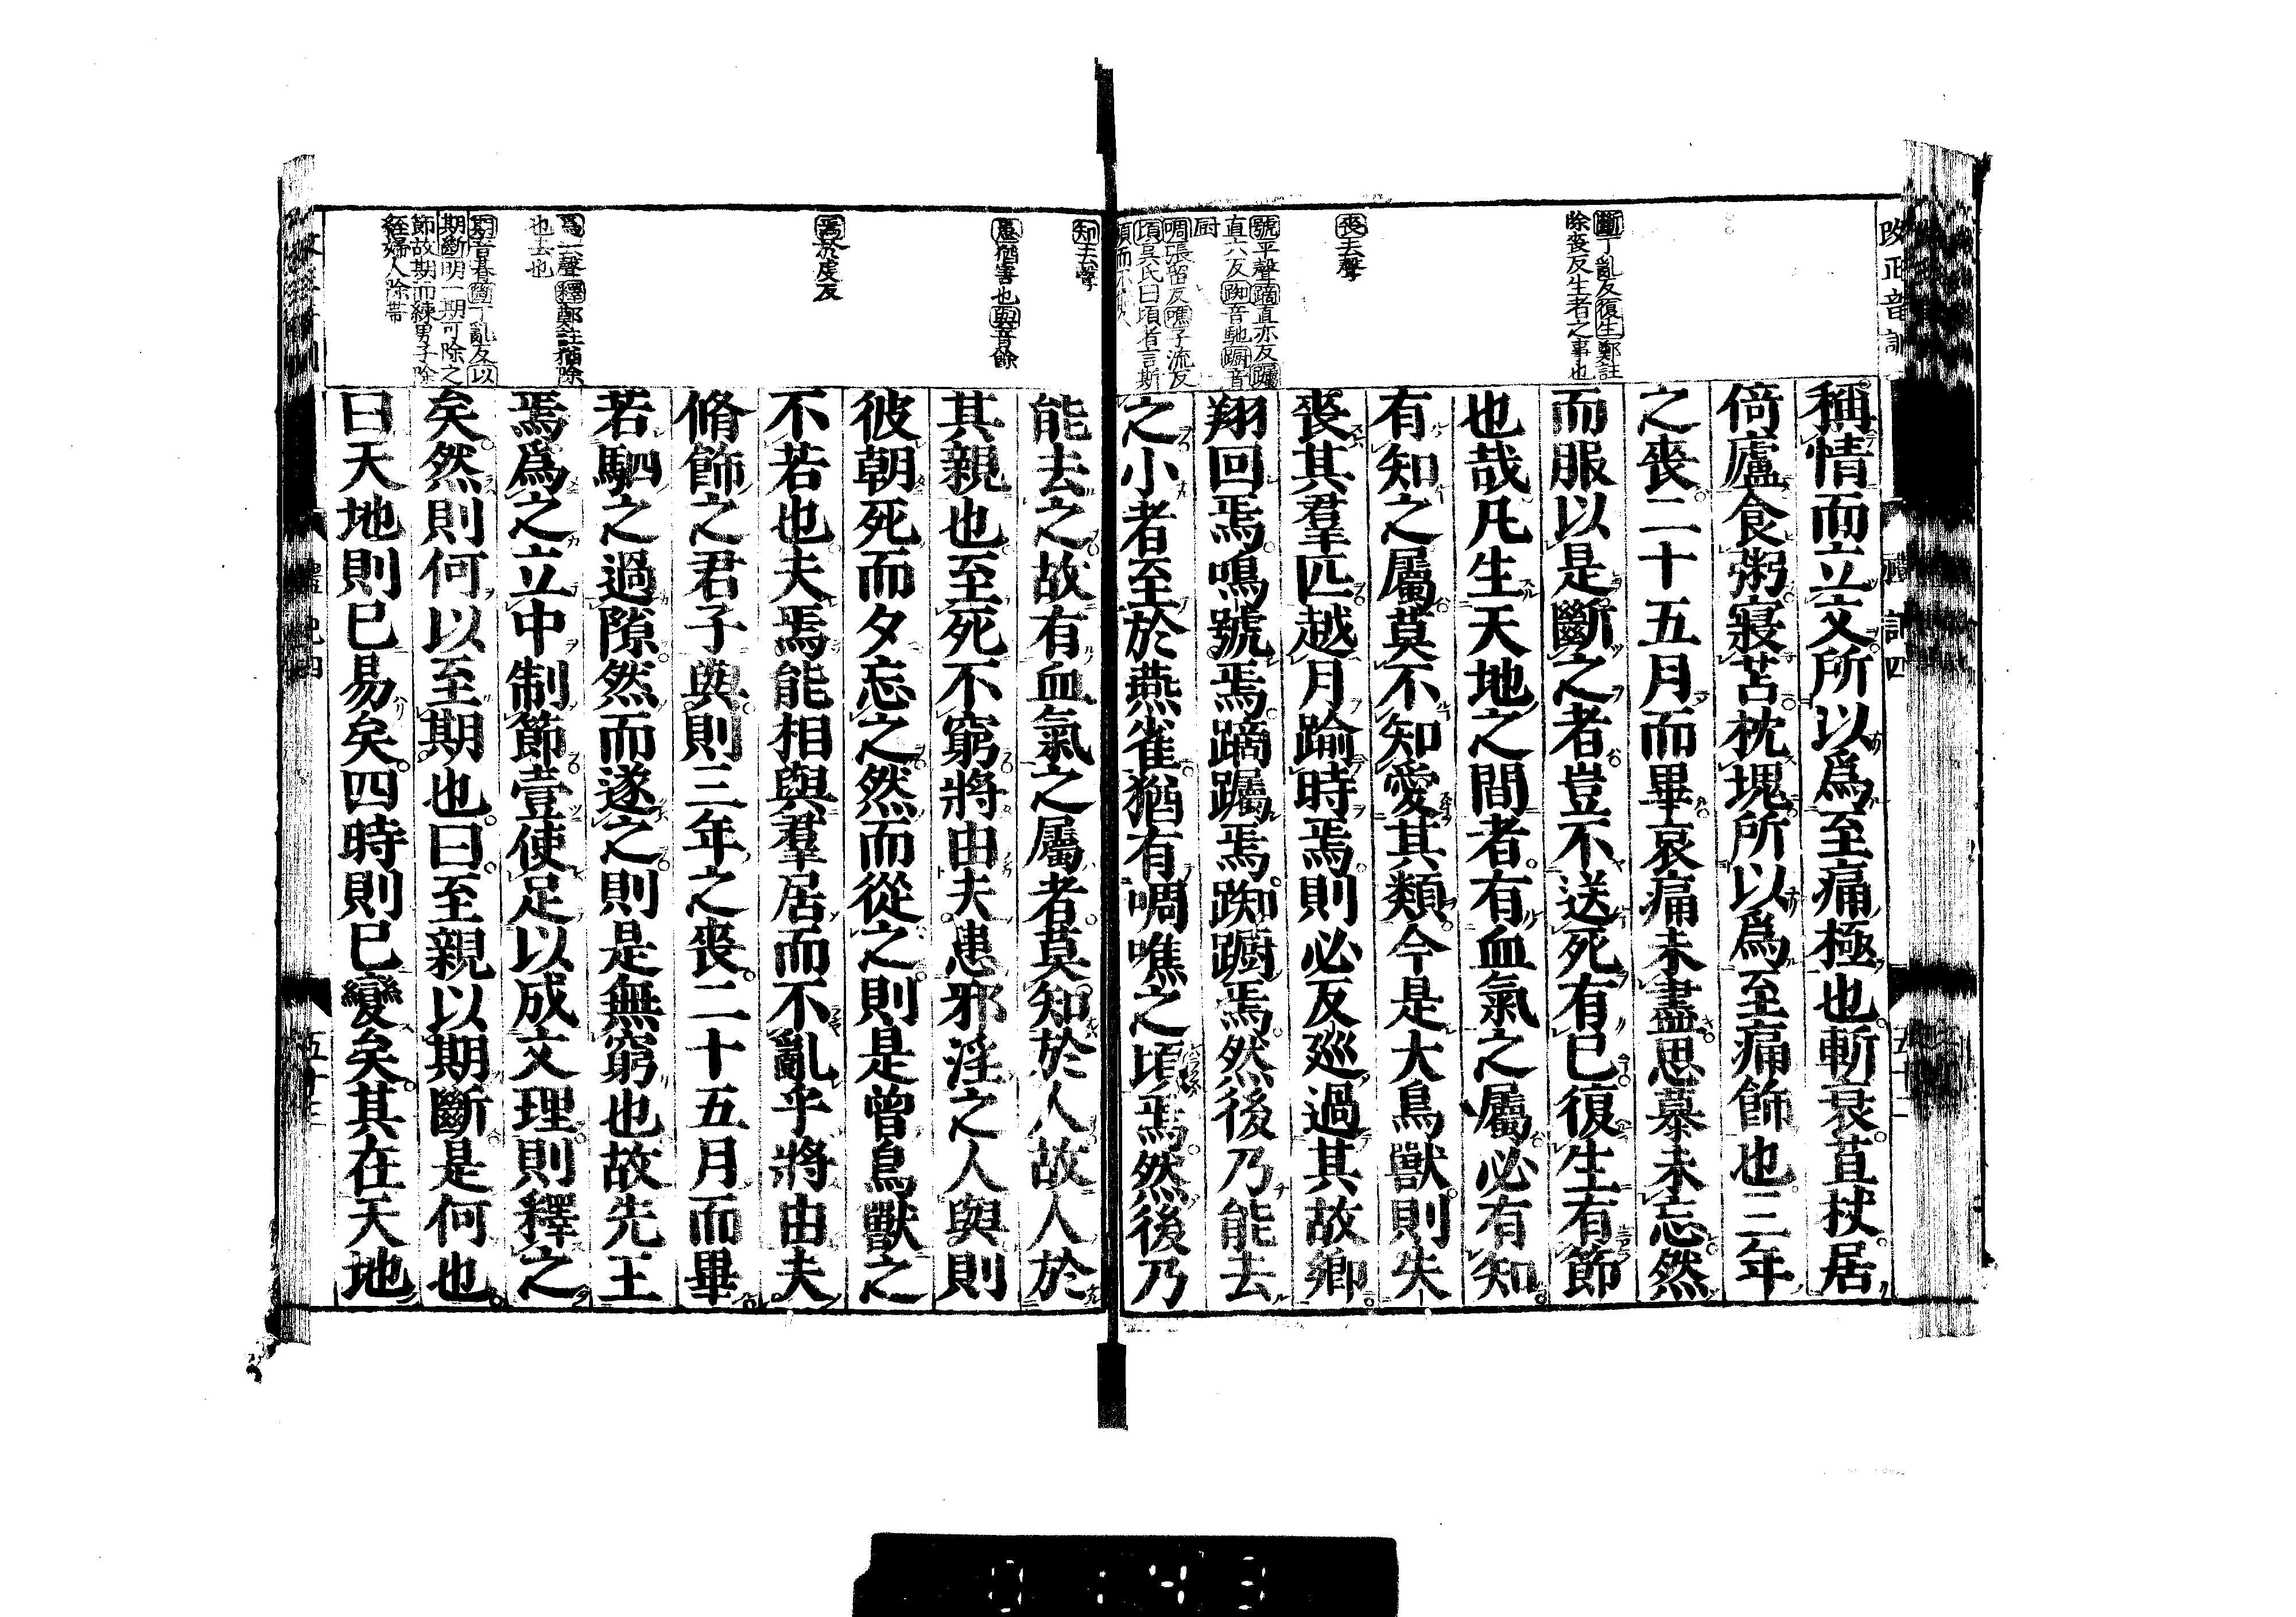 改正音訓
禮記四
五十二
斷丁亂反復生鄭註
除喪反生者之事也
喪去聲
號平聲蹢直亦反躅
直六反踟音馳躕音
厨
啁張留反噍子流反
頃吳氏曰頃者言斯
稱情而立文所以爲至痛極也斬衰苴杖居
倚廬食粥寢苫枕塊所以爲至痛飾也三年
之喪二十五月而畢哀痛未盡思慕未忘然
而服以是斷之者豈不送死有已復生有節
也哉凡生天地之間者有血氣之屬必有知
有知之屬莫不知愛其類今是大鳥獸則失
喪其羣匹越月踰時焉則必反廵過其故鄉
翔回焉鳴號焉蹢躅焉踟躕焉然後乃能去
之小者至於燕雀猶有啁噍之頃焉然後乃
知去聲
患猶害也與音餘
焉於虔反
爲去聲釋鄭註猶除
也去也
期音朞斷丁亂反以
期斷明一期可除之
節故期而練男子除
絰婦人除帶
能去之故有血氣之屬者莫知於人故人於
其親也至死不窮將由夫患邪淫之人與則
彼朝死而夕忘之然而從之則是曾鳥獸之
不若也夫焉能相與羣居而不亂乎將由夫
脩飾之君子與則三年之喪二十五月而畢
若駟之過隙然而遂之則是無窮也故先王
焉爲之立中制節壹使足以成文理則釋之
矣然則何以至期也曰至親以期斷是何也
曰天地則已易矣四時則已變矣其在天地